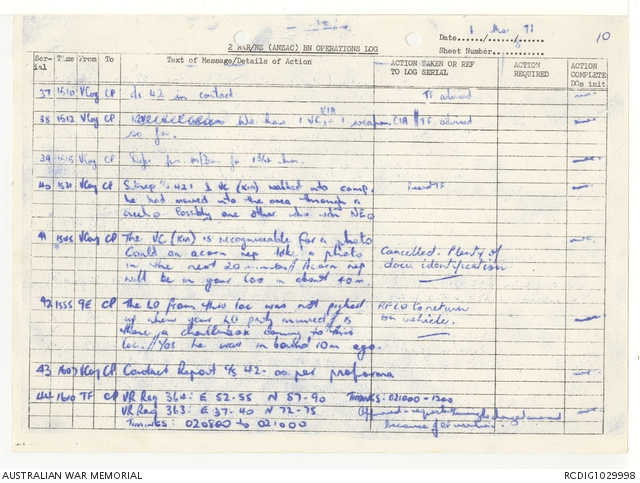 1 Mar 71
Date
10
2 RAR/NZ (ANZAC) BN OPERATIONS LOG
Sheet Number
Ser-ial Time From To Text of Message/Details of Action ACTION TAKEN OR REF TO LOG SERIAL ACTION REQUIRED ACTION COMPLETE DOs init
37 1510 VCoy CP c/s 42 in contact TF advised
38 1512 VCoy CP We have 1 VC KIA 1 weapon CIA TF advised
so far.
39 VCoy CP for 1 3/4 hrs.
40 1521 VCoy CP Sitrep c/s 421 1 VC (KIA) walked into camp. TF
he had moved into the area through a
creek Possibly one other who
41 1545 VCoy CP The VC (KIA) is recogniseable for a photo
Could an acorn rep take a photo Cancelled. Plenty of
in the next 20 minutes // Acorn rep docu identification
will be in your loc in about 40m.
42 1555 9E CP The LO from this loc was not picked RF LO to return
up when your LO party moved // Is on vehicle.
there a chatterbox coming to this
loc. // Yes he was in 10m ago.
43 1607 VCoy CP Contact Report c/s 42 - as per proforma
44 1610 TF CP VR Req 362: E 52-55 N 87-90 TIMINGS: 021000-1200
VR Req 363: E 37-40 N 72-75
TIMINGS: 020800 to 021000 because of RF
AUSTRALIAN WAR MEMORIAL
RCDIG1029998